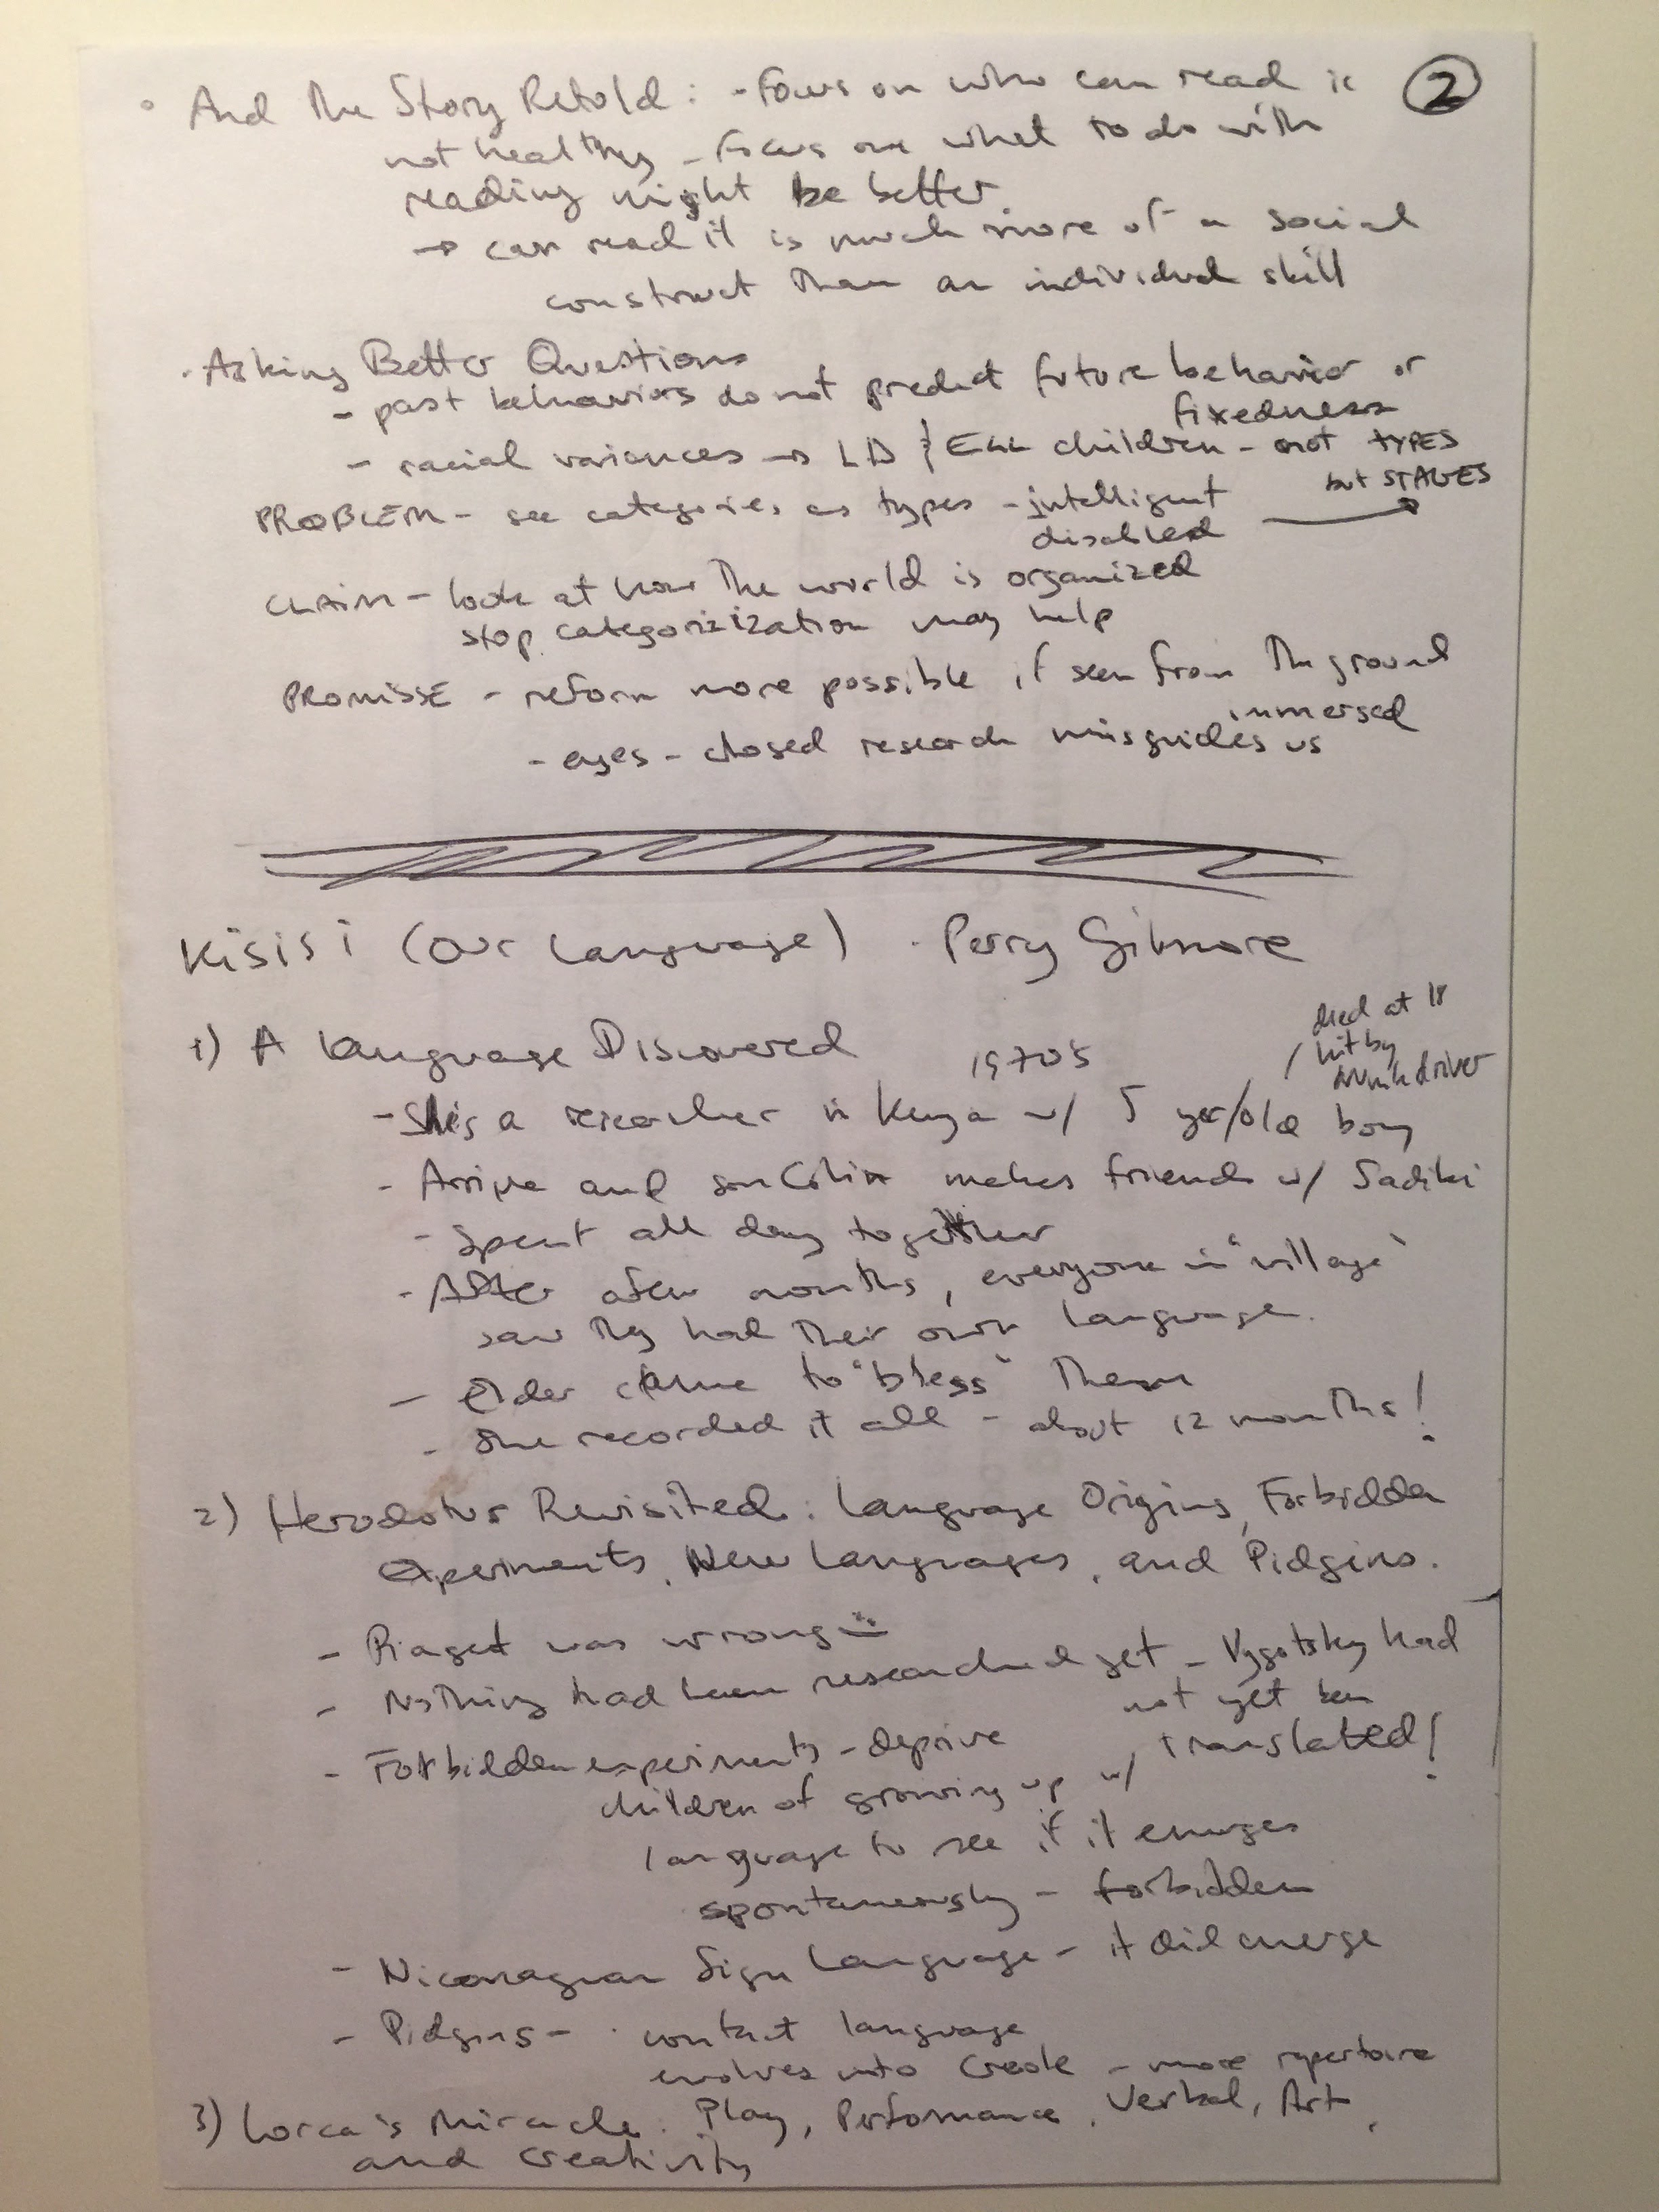 ②
• And The Story Retold : - Focus on who can read is
not healthy - Focus on what to do with
reading might be better
→ can read it is much more of a social
construct than an individual skill
· Asking Better Questions
- past behaviors do not predict future behavior or
fixedness
- racial variances → LD & ELL children - not TYPES
but STAGES
PROBLEM - see categories as types - intelligent
disabled →
CLAIM - look at how the world is organized
stop categorizization may help
PROMISSE - reform more possible if seen from the ground
immersed
- eyes - closed research misguides us
Kisisi (Our Language) · Perry Gilmore
1) A Language Discovered
1970s
died at 18
hit by
drunk driver
- She's a researcher in Kenya w/ 5 year/old boy
- Arrive and son Colin makes friends w/ Sadiki
- Spent all day together
- After a few months, everyone in "village"
saw they had their own language.
- Elder came to "bless" them
- She recorded it all - about 12 months!
2) Herodotus Revisited: Language Origins, Forbidden
Experiments, New Languages, and Pidgins.
- Piaget was wrong
- Nothing had been researched yet - Vygotsky had
not yet been
translated!
- Forbidden experiments - deprive
children of growing up w/
language to see if it emerges
spontaneously - forbidden
- Nicaraguan Sign Language - it did emerge
- Pidgins - · contact language
evolves into Creole - more repertoire
3) Lorca's Miracle: Play, Performance, Verbal, Art,
and Creativity